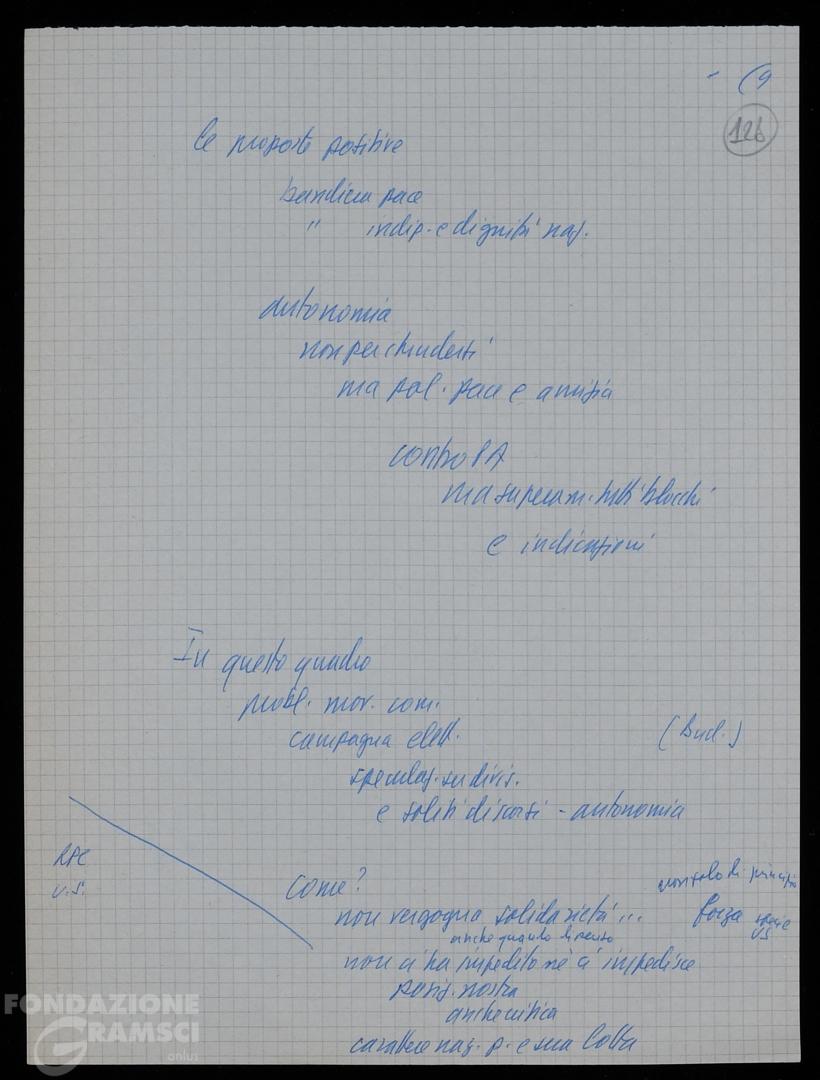 - (9
126
Le proposte positive
bandiera pace
" indip. e dignità naz.
autonomia
non per chiuderti
ma pol. pace e amicizia
contro PA
ma superam. tutti blocchi
e indicazioni
In questo quadro
probl. mov. com.
campagna elett. (Bud.)
speculaz. su divis.
e soliti discorsi - autonomia
RPC
U.S.
come? non solo di principio
non vergogna solidarietà... forza specie US
anche quando
non ci ha impedito né ci impedisce
posiz. nostra
anche critica
carattere naz. p. e sua lotta
FONDAZIONE
GRAMSCI
onlus